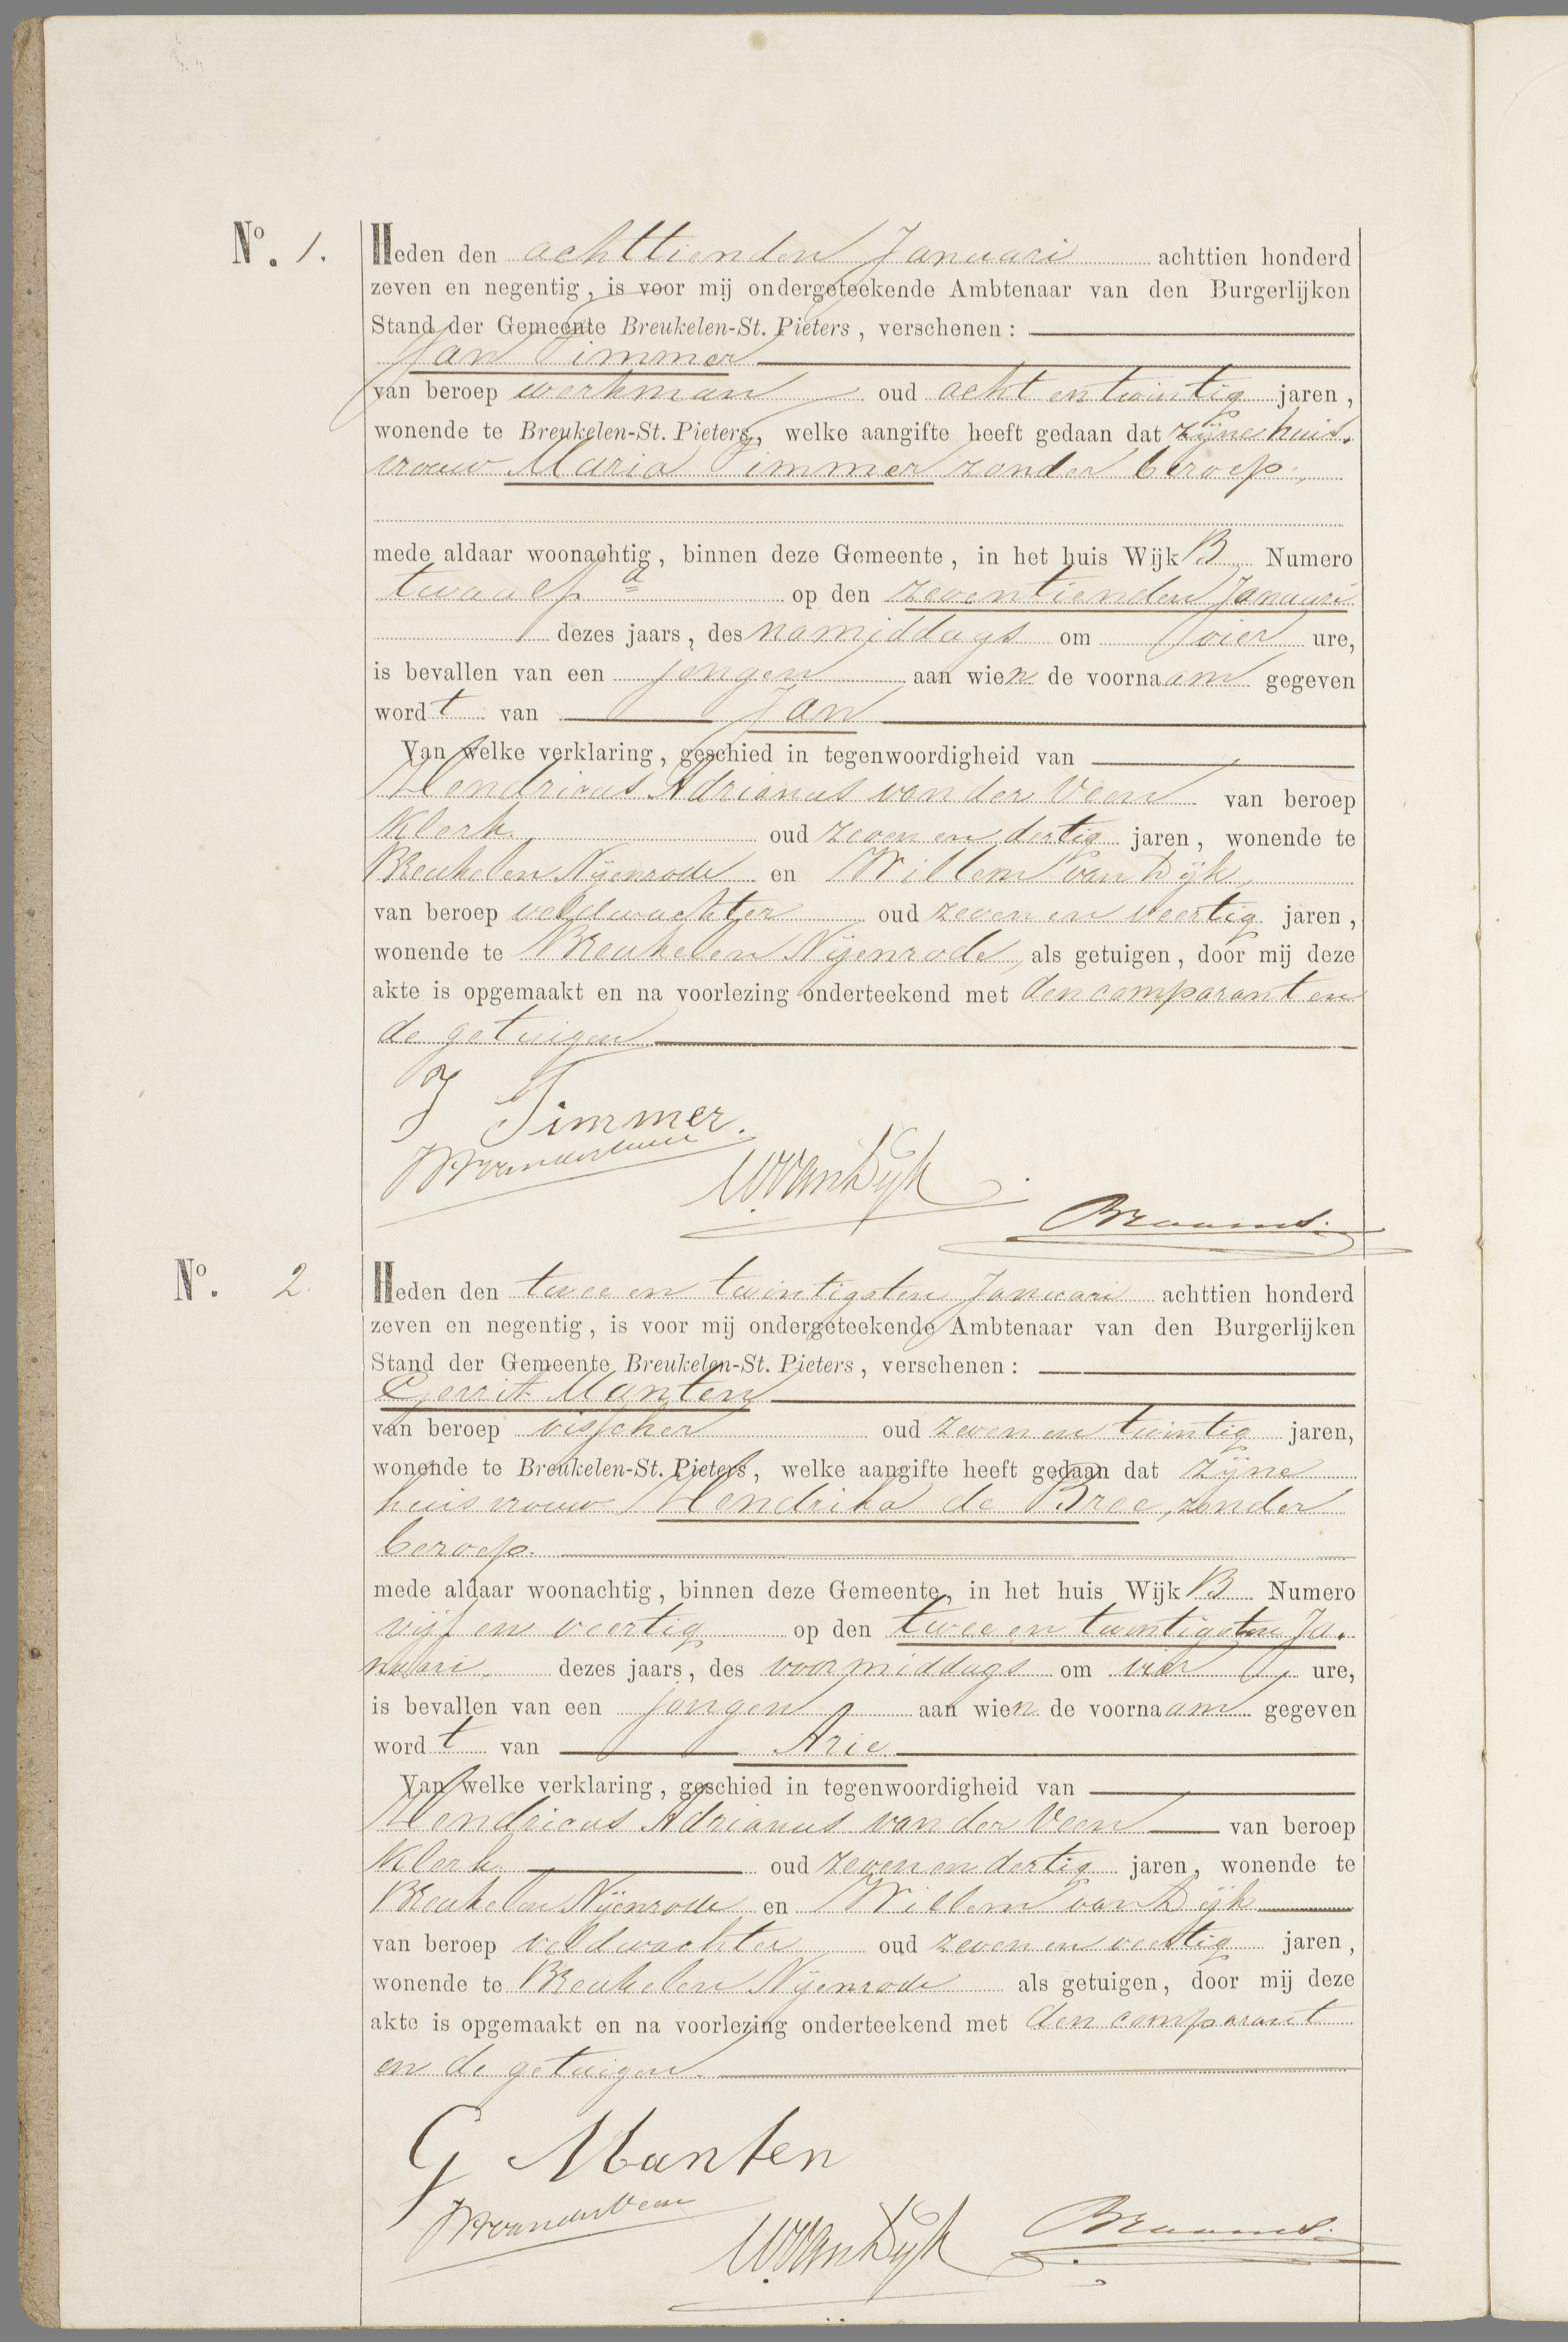 No. 1. Heden den achttienden Januari achttien honderd
zeven en negentig, is voor mij ondergeteekende Ambtenaar van den Burgerlijken
Stand der Gemeente Breukelen-St. Pieters, verschenen:
Jan Timmer
van beroep werkman oud acht en twintig jaren,
wonende te Breukelen-St. Pieters, welke aangifte heeft gedaan dat zijne huis-
vrouw Maria Timmer zonder beroep,
mede aldaar woonachtig, binnen deze Gemeente, in het huis Wijk B Numero
twaalf a op den zeventienden Januari
dezes jaars, des namiddags om vier ure,
is bevallen van een jongen aan wien de voornaam gegeven
wordt van Jan
Van welke verklaring, geschied in tegenwoordigheid van
Hendricus Adrianus van der Veen van beroep
Klerk oud zeven en dertig jaren, wonende te
Breukelen Nijenrode en Willem van Dijk,
van beroep veldwachter oud zeven en veertig jaren,
wonende te Breukelen Nijenrode, als getuigen, door mij deze
akte is opgemaakt en na voorlezing onderteekend met den comparant en
de getuigen
J Timmer.
HAvanderVeen
W. van Dijk
No. 2. Heden den twee en twintigsten Januari achttien honderd
zeven en negentig, is voor mij ondergeteekende Ambtenaar van den Burgerlijken
Stand der Gemeente Breukelen-St. Pieters, verschenen:
Gerrit Manten
van beroep visscher oud zeven en twintig jaren,
wonende te Breukelen-St. Pieters, welke aangifte heeft gedaan dat zijne
huisvrouw Hendrika de Bree, zonder
beroep.
mede aldaar woonachtig, binnen deze Gemeente, in het huis Wijk B Numero
vijf en veertig op den twee en twintigsten Ja-
nuari dezes jaars, des voormiddags om vier ure,
is bevallen van een jongen aan wien de voornaam gegeven
wordt van Arie
Van welke verklaring, geschied in tegenwoordigheid van
Hendricus Adrianus van der Veen van beroep
Klerk oud zeven en dertig jaren, wonende te
Breukelen Nijenrode en Willem van Dijk
van beroep veldwachter oud zeven en veertig jaren,
wonende te Breukelen Nijenrode als getuigen, door mij deze
akte is opgemaakt en na voorlezing onderteekend met den comparant
en de getuigen.
G Manten
HAvanderVeen
W. van Dijk